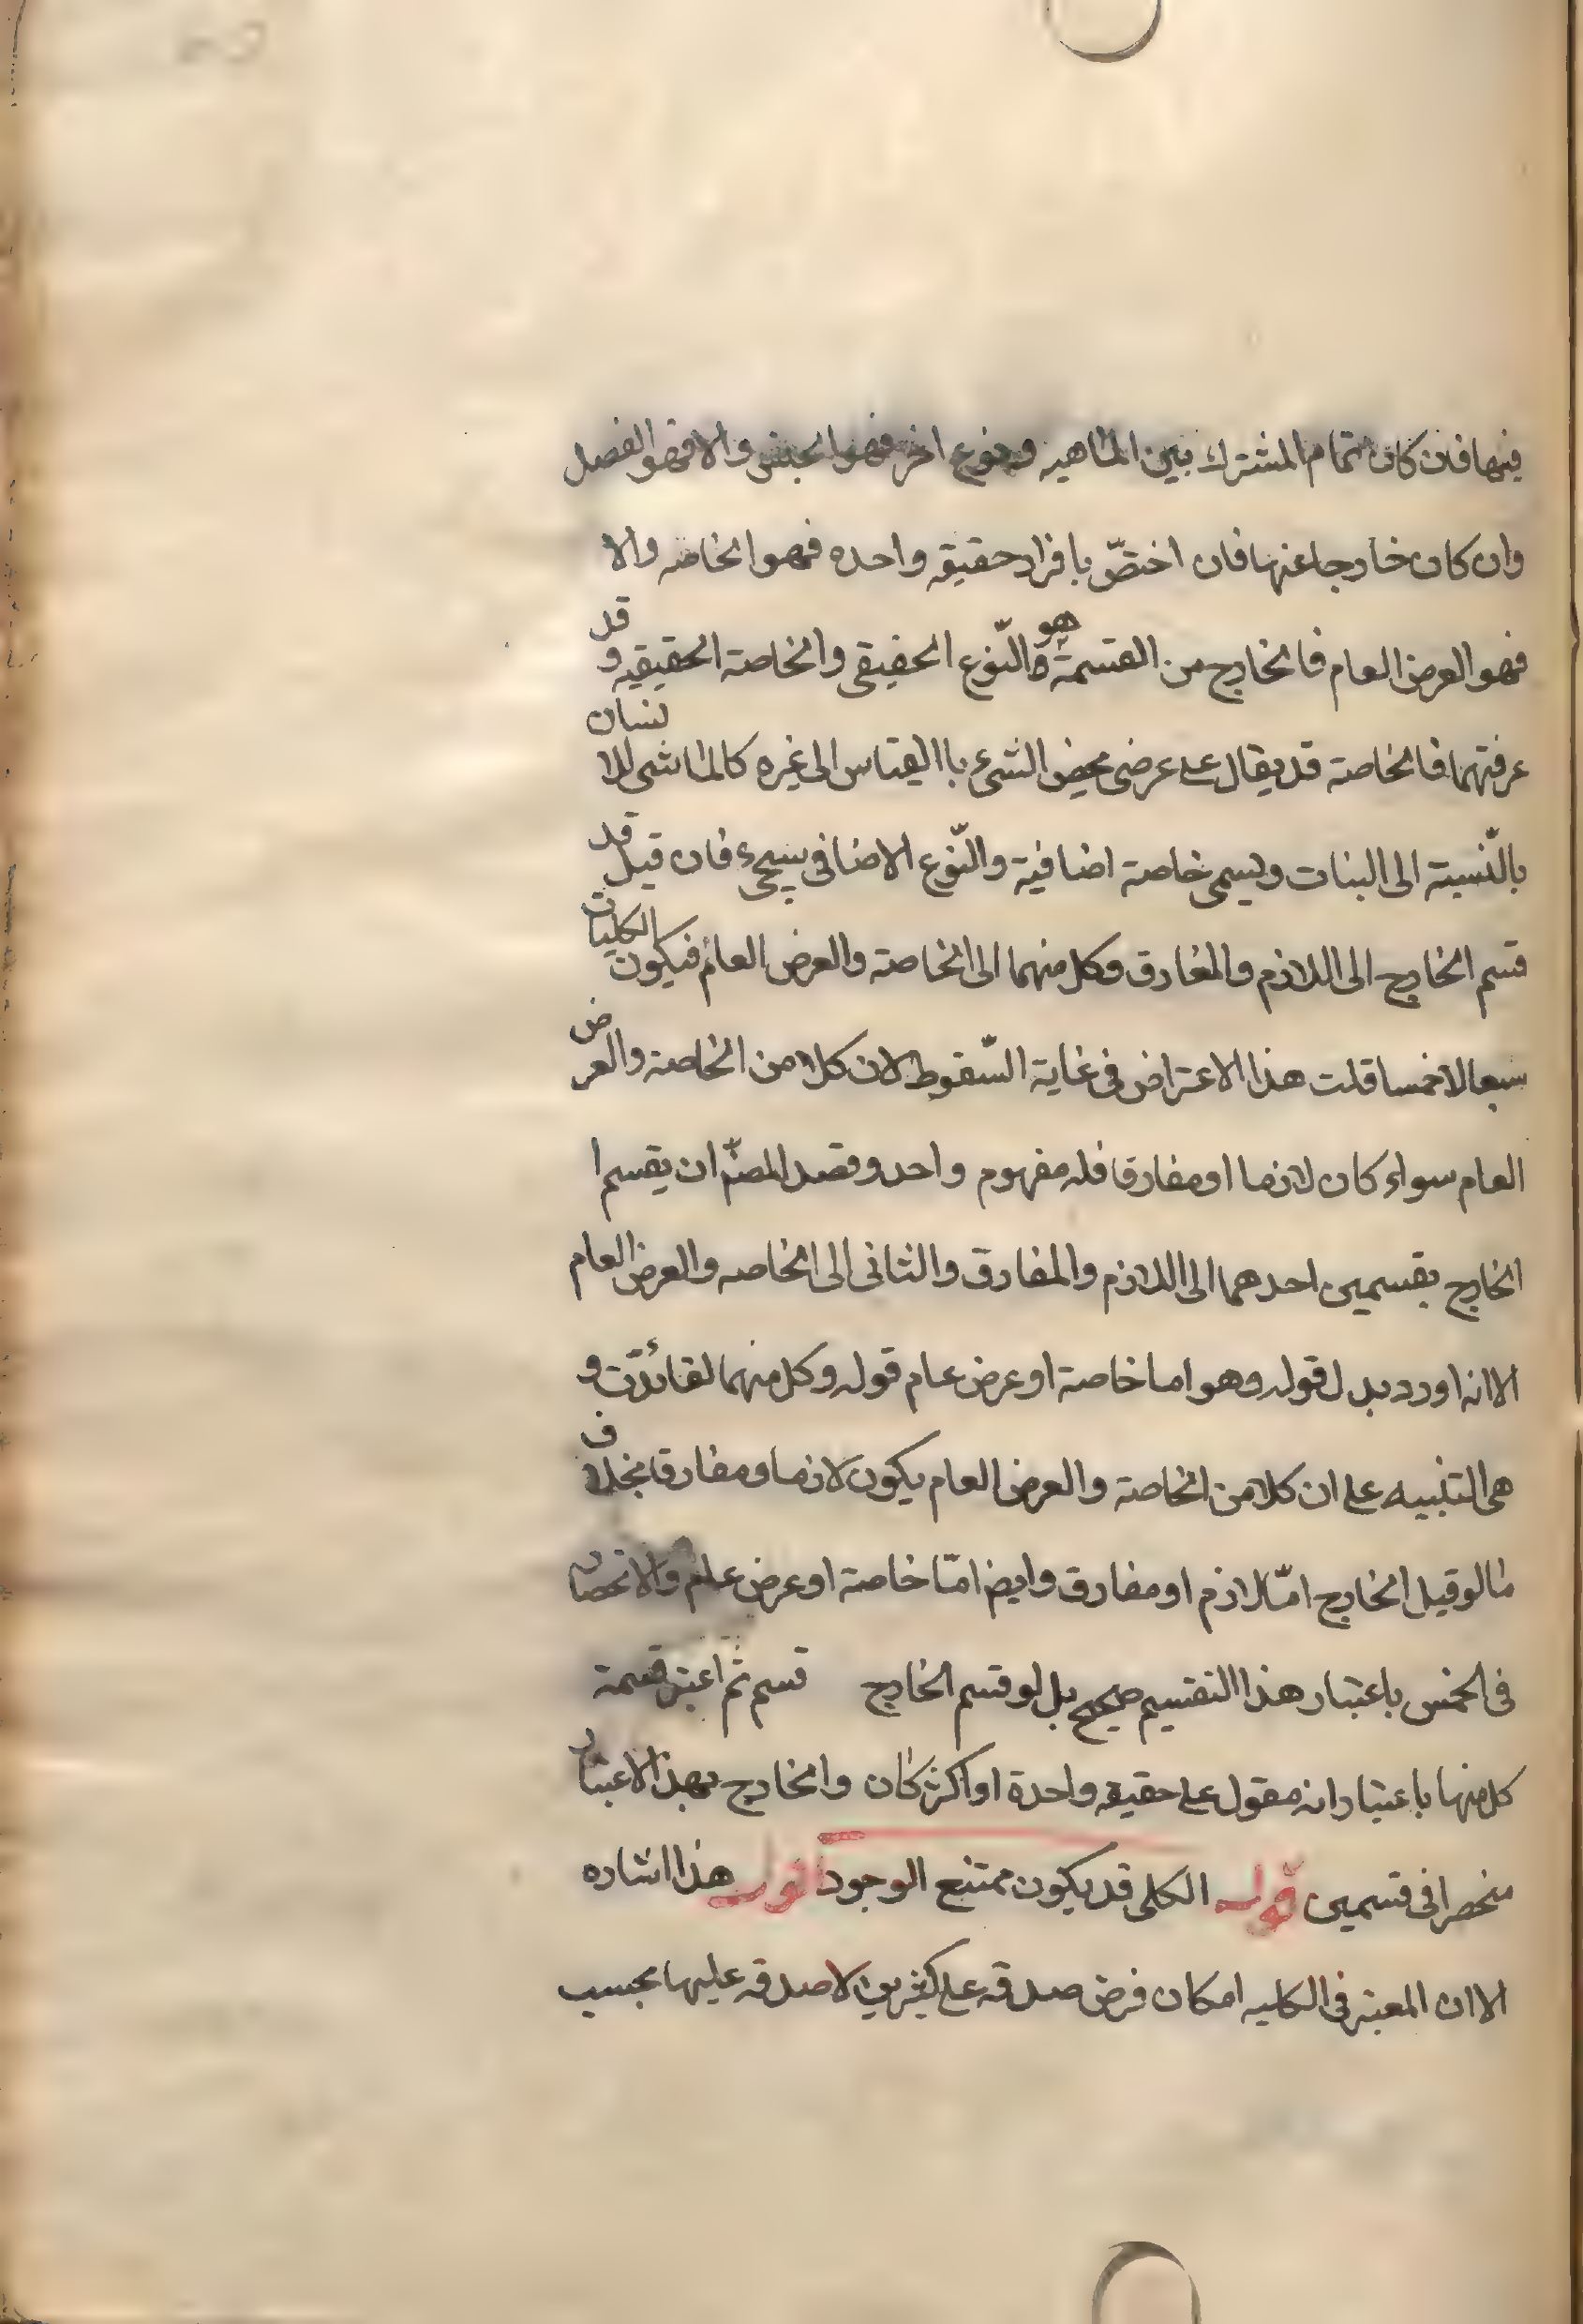 فيها فان كان تمام المشترك بين الماهيه و نوع اخر فهو الجنس والا فهو الفصل
وان كان خارجا عنها فان اختصّ بافراد حقيقه واحده فهو الخاصه والا
فهو العرض العام فالخارج من القسمة هو النّوع الحقيقى والخاصة الحقيقيه و قد
عرفتهما فالخاصة قد يقال على عرضى محض الشىء باالقياس الى غيره كالماشى للانسان
بالنّسبة الى النبات ويسمى خاصة اضافية والنّوع الاضافى سيجىء فان قيل قد
قسم الخارج الى اللازم والمفارق وكل منهما الى الخاصة والعرض العام فيكون الكليات
سبعا لا خمسا قلت هذا الاعتراض فى غاية السّقوط لان كلا من الخاصة والعرض
العام سواء كان لازما او مفارقا فله مفهوم واحد وقصد المصنّ ان يقسم ا
الخارج بقسمين احدهما الى اللازم والمفارق والثانى الى الخاصه والعرض العام
الا انه اورد بدل قوله وهو اما خاصة او عرض عام قوله وكل منهما لفائدة و
هى التنبيه على ان كلا من الخاصة والعرض العام يكون لازما ومفارقا بخلاف
ما لو قيل الخارج امّا لازم او مفارق وايض امّا خاصة او عرض عام والانحصار
فى الخمس باعتبار هذا التقسيم صحيح بل لو قسم الخارج قسم ثم اعتبر قسمة
كل منها باعتبار انه مقول على حقيقه واحدة او اكثر كان والخارج بهذا الاعتبار
منحصرا فى قسمين قوله الكلى قد يكون ممتنع الوجود اقول هذا اشاره
الا ان المعتبر فى الكليه امكان فرض صدقه على كثيرين لا صدقه عليها بحسب